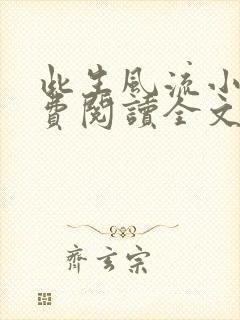 此生風流小
費閱讀全文
齊玄宗